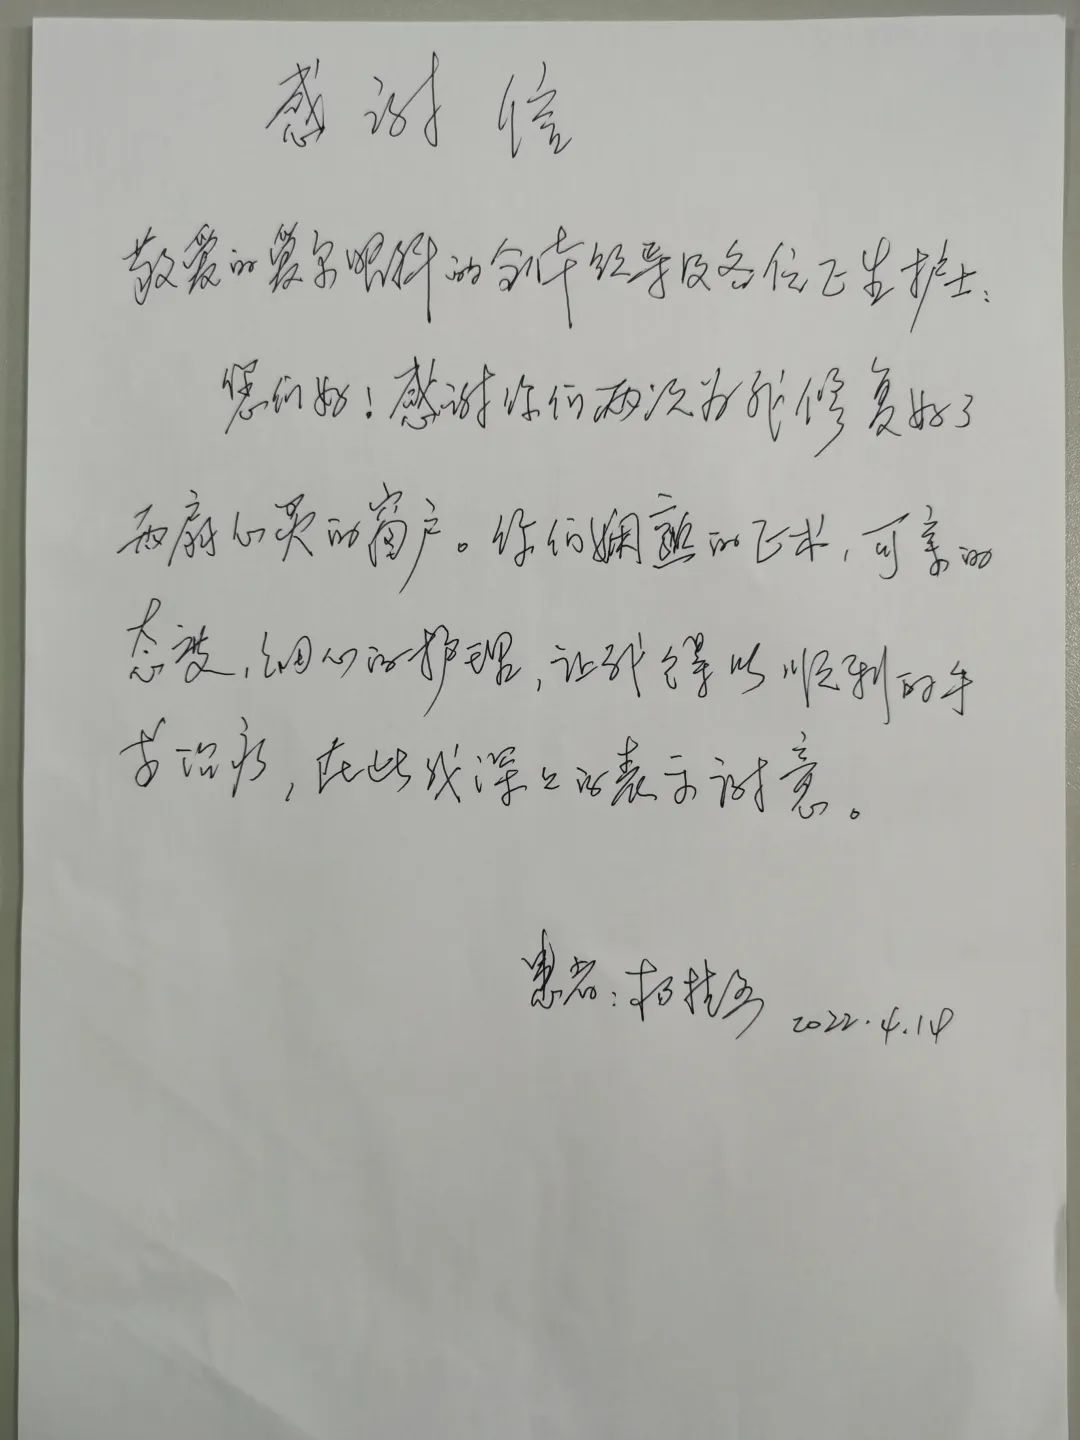 感谢信
敬爱的爱尔眼科的全体领导及各位医生护士：
您们好！感谢你们两次为我修复好了
两扇心灵的窗户。你们娴熟的医术，可亲的
态度，细心的护理，让我得以顺利的手
术治疗，在此我深深的表示谢意。
患者：杨桂 2022.4.14